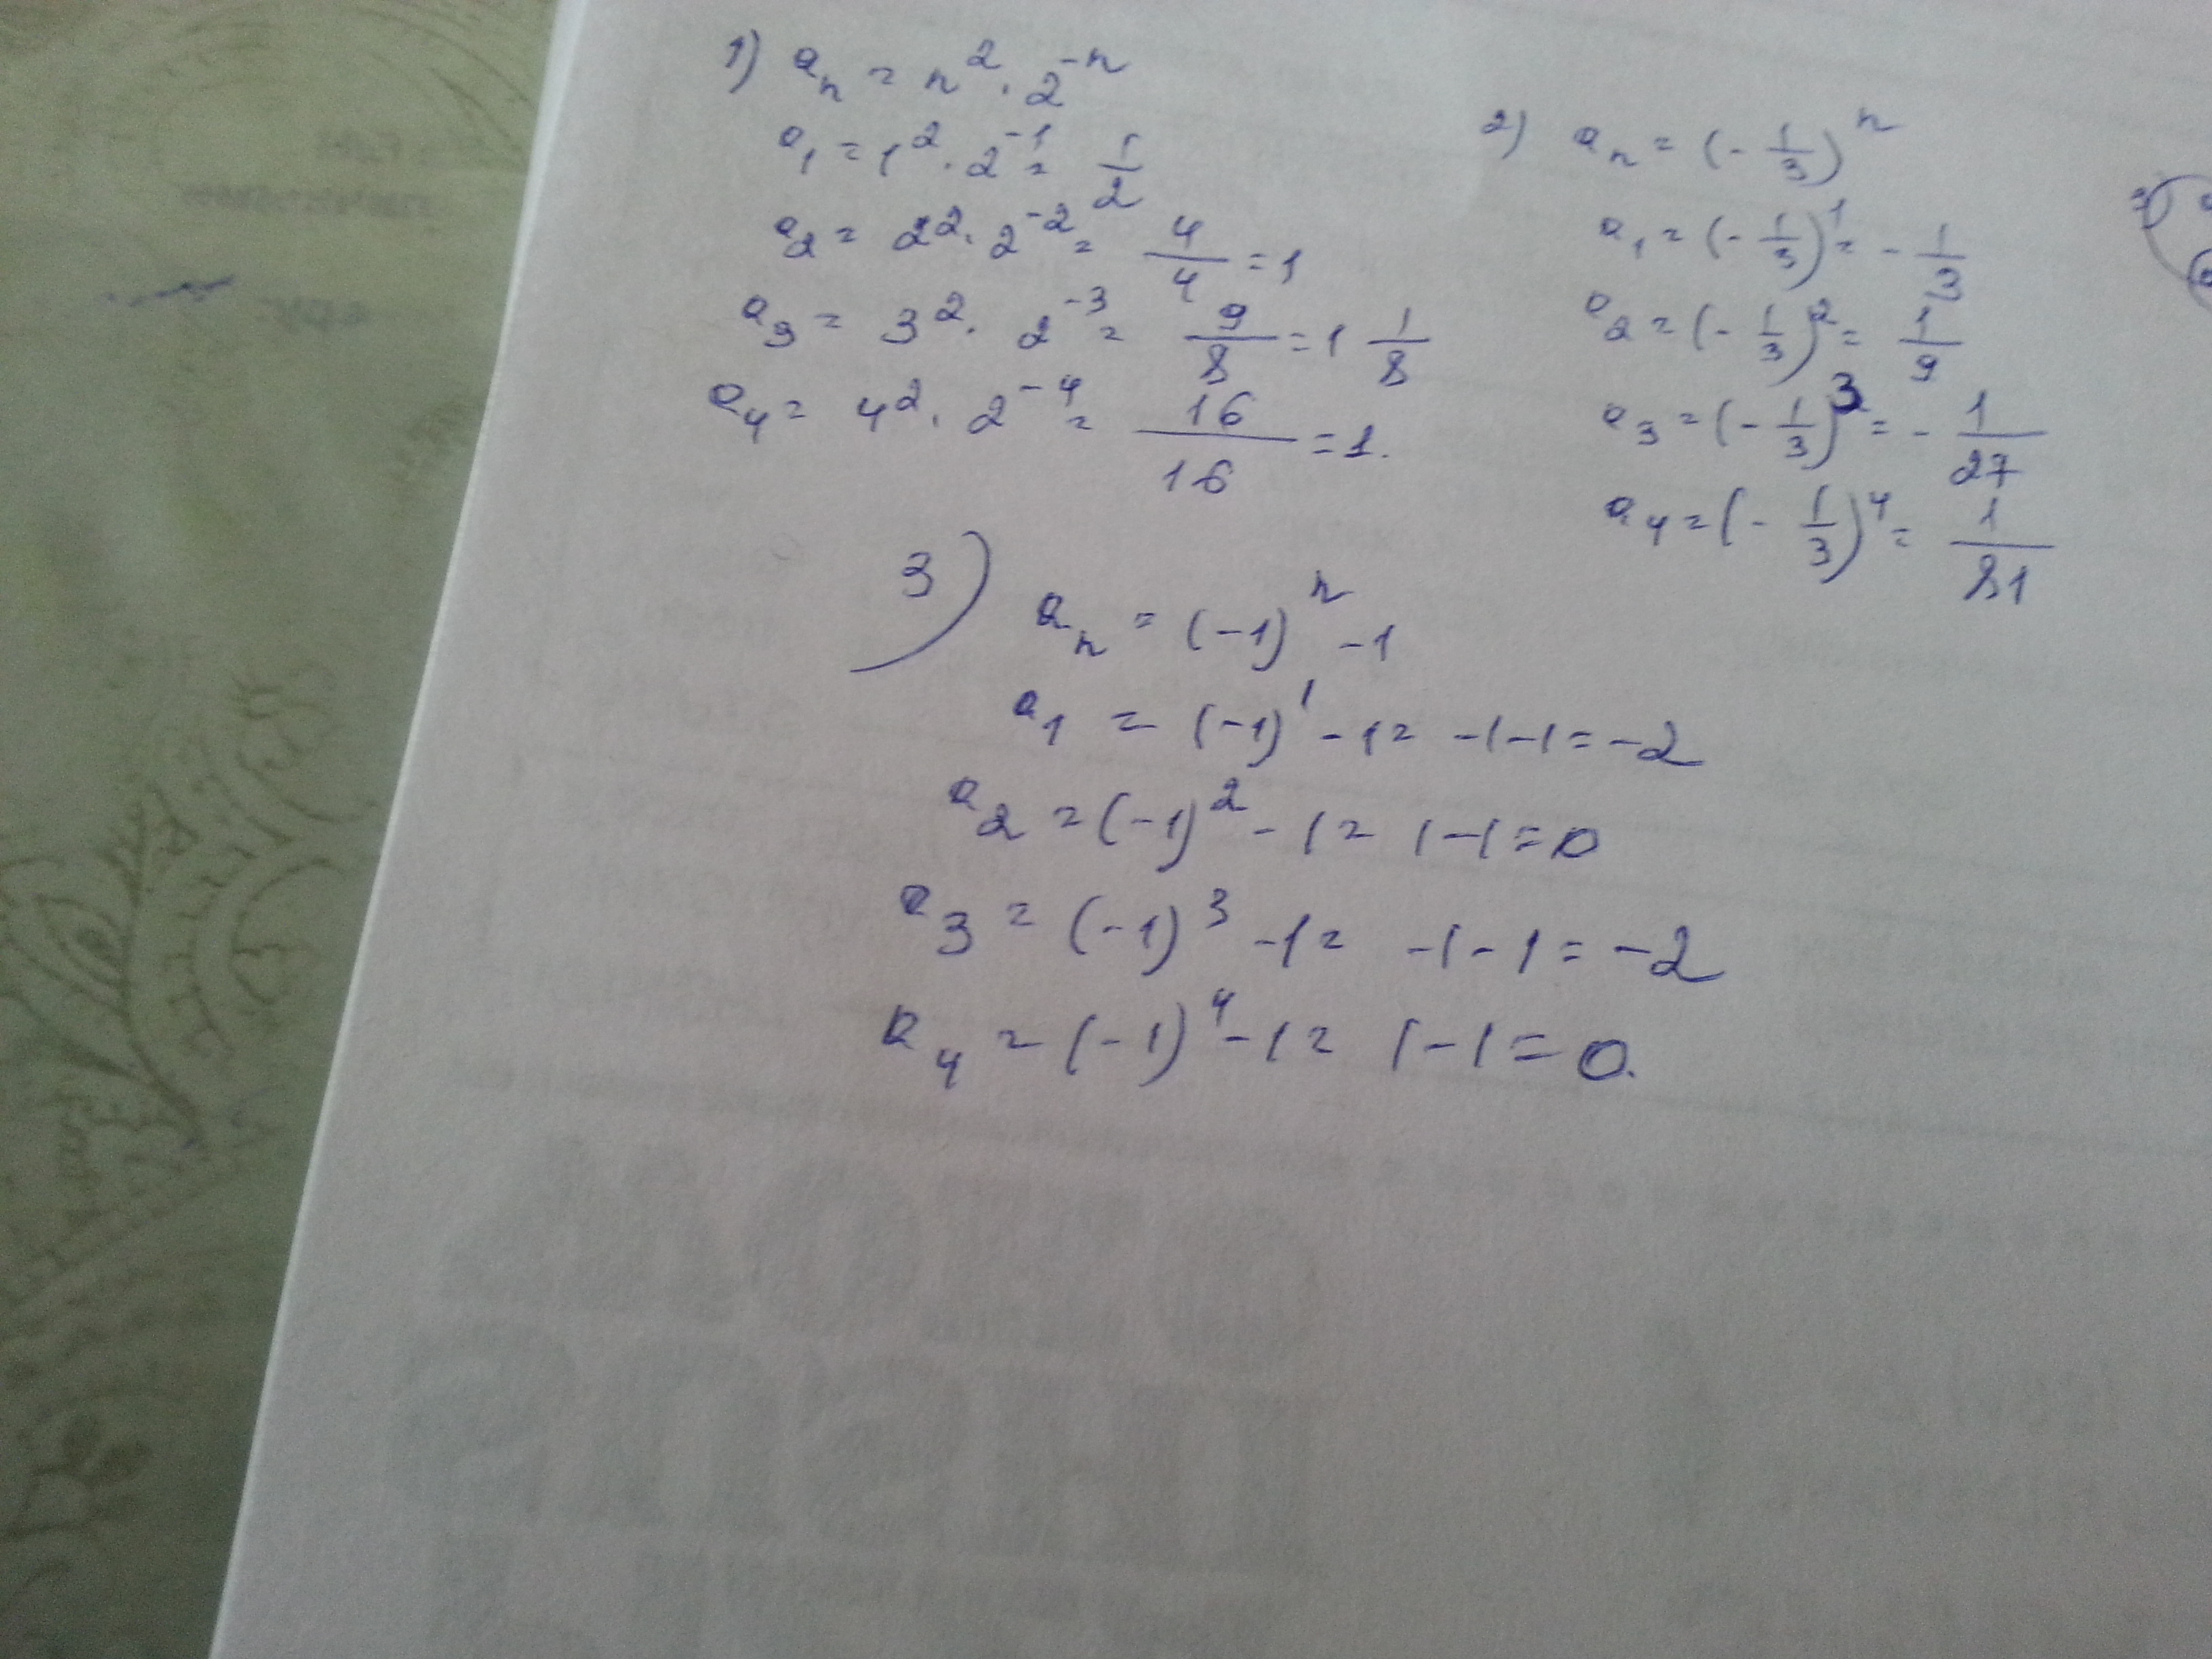 1) aₙ = n² · 2⁻ⁿ
a₁ = 1² · 2⁻¹ = 1/2
a₂ = 2² · 2⁻² = 4/4 = 1
a₃ = 3² · 2⁻³ = 9/8 = 1 1/8
a₄ = 4² · 2⁻⁴ = 16/16 = 1.
2) aₙ = (- 1/3)ⁿ
a₁ = (- 1/3)¹ = - 1/3
a₂ = (- 1/3)² = 1/9
a₃ = (- 1/3)³ = - 1/27
a₄ = (- 1/3)⁴ = 1/81
3) aₙ = (-1)ⁿ - 1
a₁ = (-1)¹ - 1 = -1-1 = -2
a₂ = (-1)² - 1 = 1-1 = 0
a₃ = (-1)³ - 1 = -1-1 = -2
a₄ = (-1)⁴ - 1 = 1-1 = 0.